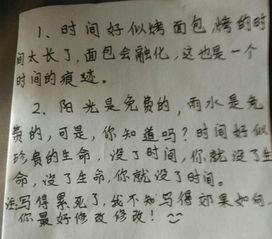 1、时间好似烤面包，烤的时
间太长了，面包会融化，这也是一个
时间的痕迹。
2、阳光是免费的，雨水是免
费的，可是，你知道吗？时间好似
珍贵的生命，没了时间，你就没了生
命，没了生命，你就没了时间。
写得累死了，我不知写得效果如何，
你最好修改修改！